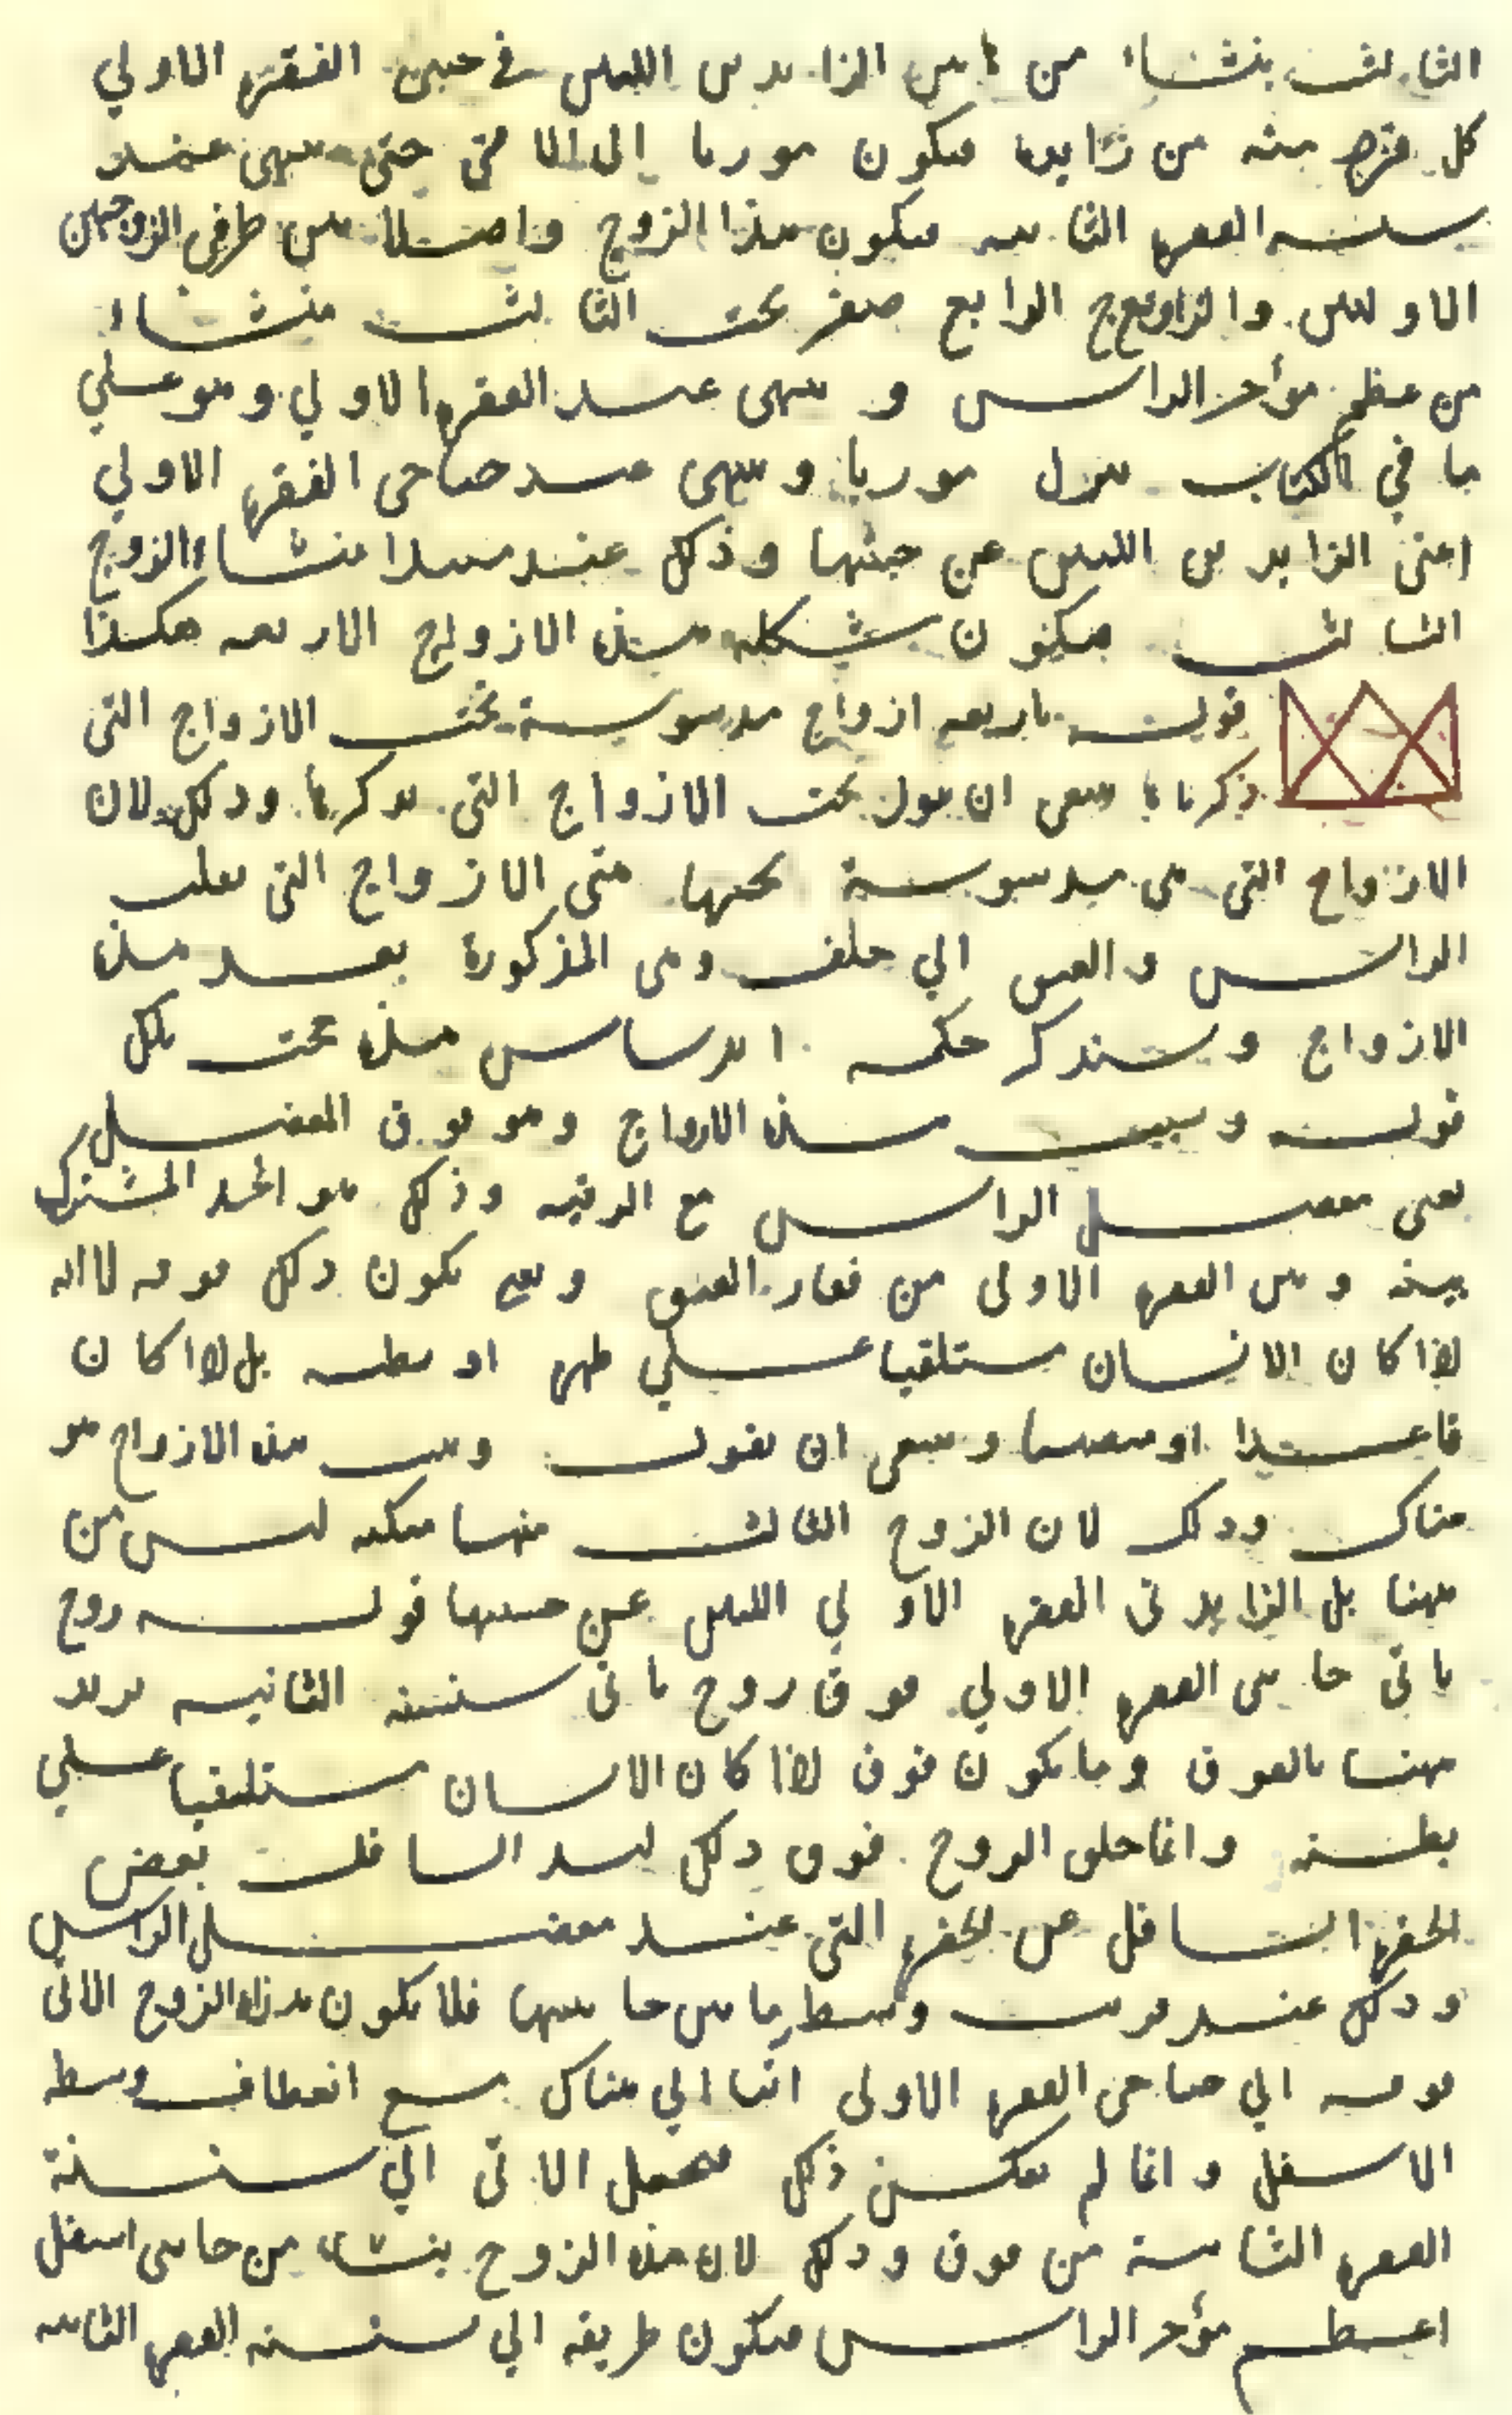 الثالث ينشاء من بين الزايدتين اللتين في جنبى الفقرة الاولي
كل فرد منه من زايده فيكون موربا الى التلاقى حتى ينتهى عند
سنسنه الفقره الثانيه فيكون هذا الزوج واصلا بين طرفى الزوجين
الاولين والزوج الرابع صغير تحت الثالث منشاءه
من عظم مؤخر الراس و ينتهى عند الفقره الاولي وهو علي
ما في الكتاب ينزل موربا وينتهى عند جناحى الفقره الاولي
اعنى الزايدتين اللتين عن جنبتها وذلك عند مبدا منشاء الزوج
الثالث فيكون شكله هذه الازواج الاربعه هكذا
قوله باربعه ازواج مدسوسة تحت الازواج التى
ذكرناها ينبغى ان يقول تحت الازواج التى نذكرها وذلك لان
الازواج التى هى مدسوسة تحتها هى الازواج التى تقلب
الراس والعنق الي خلف وهى المذكورة بعد هذه
الازواج وسنذكر حكمه اندساس هذه تحت تلك
قوله ومنبت هذه الازواج وهو فوق المفصل
يعنى مفصل الراس مع الرقبه وذلك هو الحد المشترك
بينه وبين الفقره الاولى من فقار العنق ومعنى كون ذلك فوقه لا انه
اذا كان الانسان مستلقيا علي ظهره او بطنه بل اذا كان
قاعدا او منتصبا وينبغى ان يقول ومنبت هذه الازواج هو
هناك وذلك لان الزوج الثالث منها منبته ليس من
هنا بل الزايدتى الفقره الاولي اللتين عن جنبتيها قوله زوج
ياتى جانبى الفقره الاولي فوق زوج ياتى سنسنه الثانيه يريد
ههنا بالفوق وما يكون فوق اذا كان الانسان مستلقيا علي
بطنه وانما خلق الزوج فوق ذلك ليسد السافلت بعض
الحفره السافل عن الحفره التى عند مفصل الراس
وذلك عند قرب وسط ما بين جانبيها فلا يكون هذا الزوج الاتى
فوقه الي جناحى الفقره الاولى اتيا الي هناك مع انعطاف وسطه
الاسفل وانما لم يعكس ذلك فيجعل الاتى الي سنسنة
الفقره الثانية من فوق وذلك لان هذه الزوج ينشاء من جانبى اسفل
اعظم مؤخر الراس فيكون طريقه الي سنسنه الفقره الثانيه